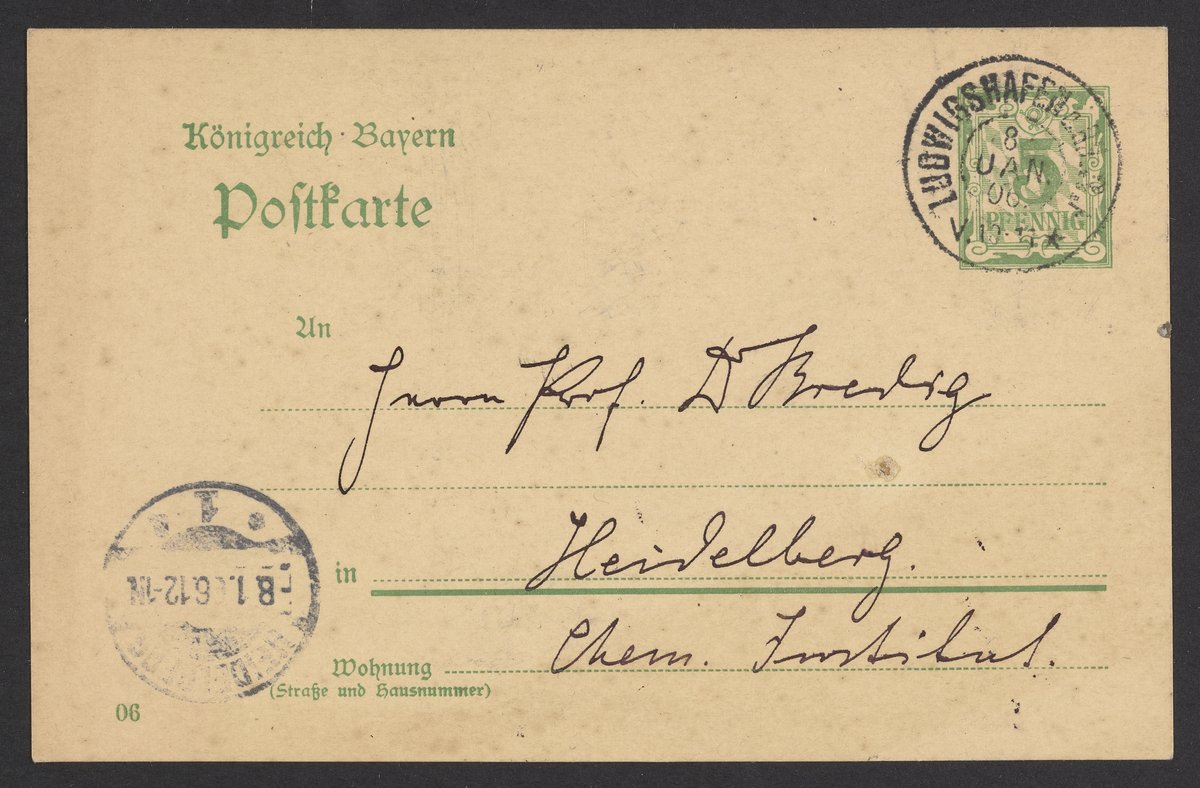 Königreich Bayern
Postkarte
LUDWIGSHAFEN
8
JAN
06
5
PFENNIG
An
Herrn Prof. Dr Bredig
in Heidelberg.
Chem. Institut.
Wohnung
(Straße und Hausnummer)
06
1
8.1.06.12-1N
HEIDELBERG